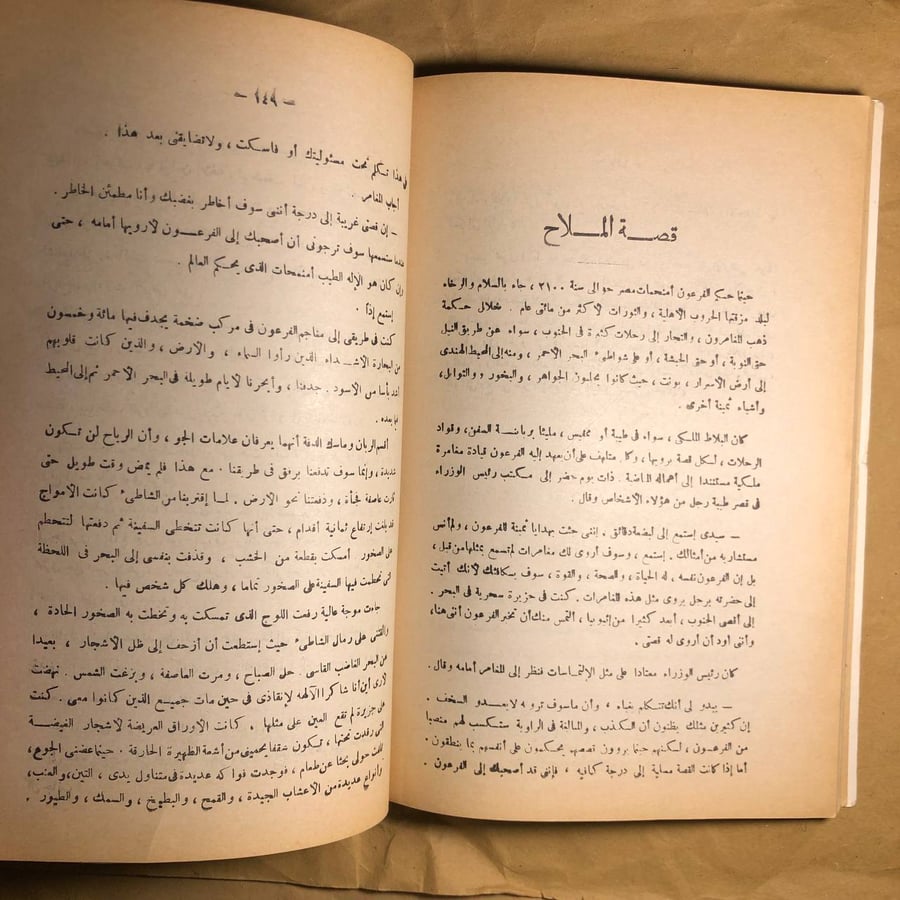 قصة الملاح
حينما حكم الفرعون أمنمحات مصر حوالى سنة ٢١٠٠ ، جاء بالسلام والرخاء
لبلد مزقتها الحروب الأهلية ، والثورات لأكثر من مائتى عام . خلال حكمة
ذهب المغامرون ، والتجار إلى رحلات كثيرة فى الجنوب ، سواء عن طريق النيل
حتى النوبة ، أو حتى الحبشة ، أو على شواطىء البحر الأحمر ، ومنه إلى المحيط الهندى
إلى أرض الأسرار ، بونت ، حيث كانوا يجلبون الجواهر ، والبخور ، والتوابل ،
وأشياء ثمينة أخرى .
كان البلاط الملكى ، سواء فى طيبة أو ممفيس ، مليئا بربابنة السفن ، وقواد
الرحلات ، لكل قصة يرويها ، وكل متلهف على أن يعهد إليه الفرعون قيادة مغامرة
ملكية مستندا إلى أعماله الماضية . ذات يوم حضر إلى مكتب رئيس الوزراء
فى قصر طيبة رجل من هؤلاء الأشخاص وقال .
— سيدى إستمع إلى لبضعة دقائق . إننى جئت بهدايا ثمينة للفرعون ، ولم أنس
مستشاريه من أمثالك . إستمع ، وسوف أروى لك مغامرات لم تسمع بمثلها من قبل ،
بل إن الفرعون نفسه ، له الحياة ، والصحة ، والقوة ، سوف يكافئك لأنك أتيت
إلى حضرته برجل يروى مثل هذه المغامرات . كنت فى جزيرة سحرية فى البحر .
إلى أقصى الجنوب ، أبعد كثيرا من إثيوبيا ، ألتمس منك أن تخبر الفرعون أننى هنا ،
وأننى أود أن أروى له قصتى .
كان رئيس الوزراء معتادا على مثل الإلتماسات فنظر إلى المغامر أمامه وقال .
— يبدو لى أنك تتكلم بغباء ، وأن ماسوف ترويه لا يعدو السخف .
إن كثيرين مثلك يظنون أن الكذب ، والمبالغة فى الرواية ستكسب لهم منصبا
من الفرعون ، لكنهم حينما يروون قصصهم يحكمون على أنفسهم بما ينطقون .
أما إذا كانت القصة مسلية إلى درجة كافية ، فإننى قد أصحبك إلى الفرعون
— ١٤٩ —
فى هذا تكلم تحت مسئوليتك أو فاسكت ، ولا تضايقنى بعد هذا .
أجاب المغامر .
— إن قصتى غريبة إلى درجة أننى سوف أخاطر بغضبك وأنا مطمئن الخاطر .
عندما ستسمعها سوف ترجونى أن أصحبك إلى الفرعون لأرويها أمامه ، حتى
وإن كان هو الإله الطيب أمنمحات الذى يحكم العالم .
إستمع إذاً .
كنت فى طريقى إلى مناجم الفرعون فى مركب ضخمة يجدف فيها مائة وخمسون
من البحارة الأشداء الذين رأوا السماء ، والأرض ، والذين كانت قلوبهم
أشد بأسا من الأسود . جدفنا ، وأبحرنا لأيام طويلة فى البحر الأحمر ثم إلى المحيط
فيما بعده .
أقسم الربان وماسك الدفة أنهما يعرفان علامات الجو ، وأن الرياح لن تكون
شديدة ، وإنما سوف تدفعنا برفق فى طريقنا . مع هذا فلم يمض وقت طويل حتى
ثارت عاصفة فجأة ، ودفعتنا نحو الأرض . لما إقتربنا من الشاطىء كانت الأمواج
قد بلغت إرتفاع ثمانية أقدام ، حتى أنها كانت تتخطى السفينة ثم دفعتها لتتحطم
على الصخور . أمسكت بقطعة من الخشب ، وقذفت بنفسى إلى البحر فى اللحظة
التى تحطمت فيها السفينة على الصخور تماما ، وهلك كل شخص فيها .
جاءت موجة عالية رفعت اللوح الذى تمسكت به وتخطت به الصخور الحادة ،
وألقتنى على رمال الشاطىء حيث إستطعت أن أزحف إلى ظل الأشجار ، بعيدا
عن البحر الغاضب القاسى . حل الصباح ، ومرت العاصفة ، وبزغت الشمس . نهضت
لأرى أين أنا شاكرا الآلهة لإنقاذى فى حين مات جميع الذين كانوا معى . كنت
على جزيرة لم تقع العين على مثلها . كانت الأوراق العريضة لأشجار الغيضة
التى رقدت تحتها ، تكون سقفا يحمينى من أشعة الظهيرة الحارقة . حينما عضنى الجوع ،
تلفت حولى بحثا عن طعام ، فوجدت فواكه عديدة فى متناول يدى ، التين ، والعنب ،
وأنواع عديدة من الأعشاب الجيدة ، والقمح ، والبطيخ ، والسمك ، والطيور .